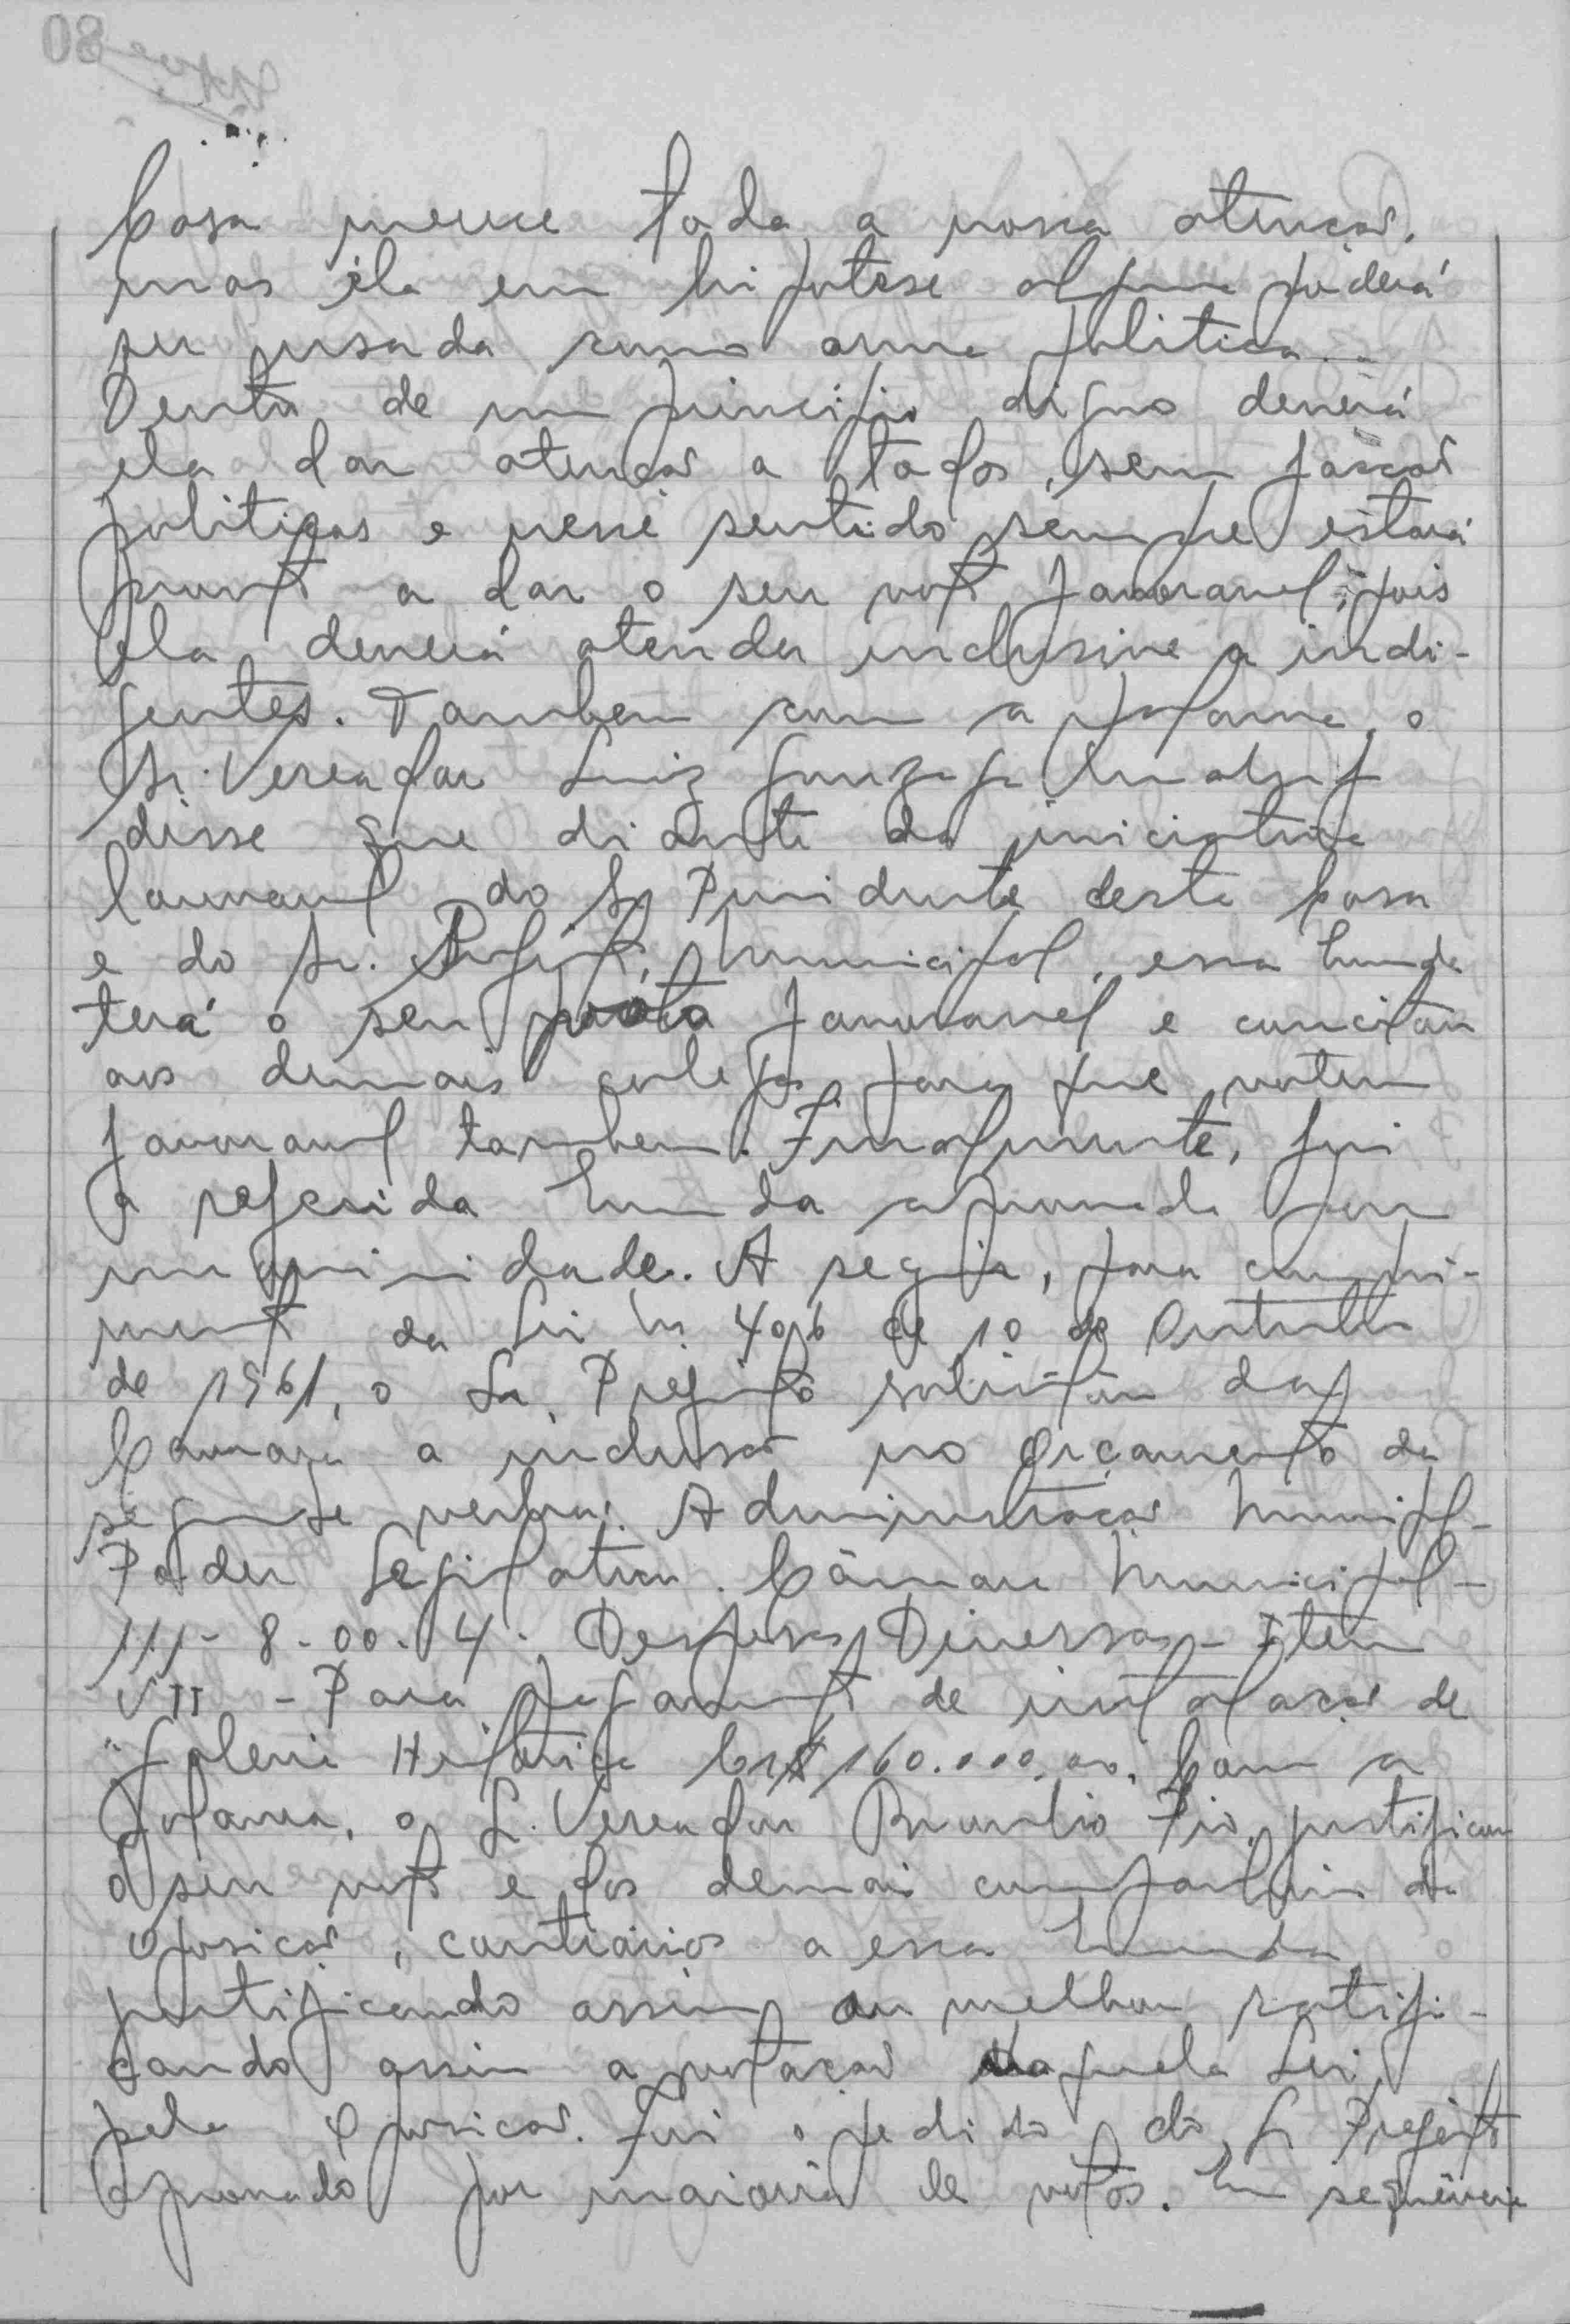 Casa merece toda a nossa atenção,
mas éla em hipotese alguma poderá
ser usada como arma politica.
Dentro de um principio digno deverá
ela dar atenção a todos, sem facção
politicas e nesse sentido sempre estará
pronto a dar o seu voto favoravel, pois
ela deverá atender inclusive a indi-
gentes. Tambem com a palavra, o
Sr. Vereador Luiz Gonzaga
disse que diante da iniciativa
louvavel do Sr Presidente desta Casa
e do Sr. Prefeito Municipal, essa Emenda
terá o seu voto favoravel e concitou
aos demais colegas para que votem
favoravel tambem. Finalmente, foi
a referida Emenda aprovada por
unanimidade. A seguir, para cumpri-
mento da Lei nº 406 de 10 de Outubro
de 1961, o Sr. Prefeito solicitou da
Camara a inclusão no Orçamento da
seguinte verba: Administração Municipal-
Poder Legislativo. Câmara Municipal-
111- 8-00-4. Despesas Diversas - Item
VII - Para pagamento de instalação de
"Galeria Historica Cr$ 160.000,00. Com a
palavra, o Sr. Vereador Braulio Pio, justificou
o seu voto e dos demais companheiros da
oposição, contrários a essa Emenda
justificando assim ou melhor ratifi-
cando assim a votação daquela Lei
pela Oposição. Foi o pedido do Sr Prefeito
aprovado por maioria de votos. Em sequência